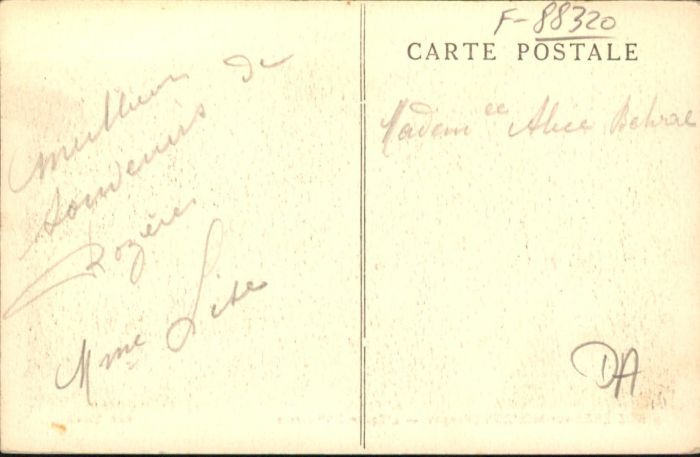 F-88320
CARTE POSTALE
Meilleurs de
souvenirs
Rozières
Mme Lise
Madem elle Alice
DA